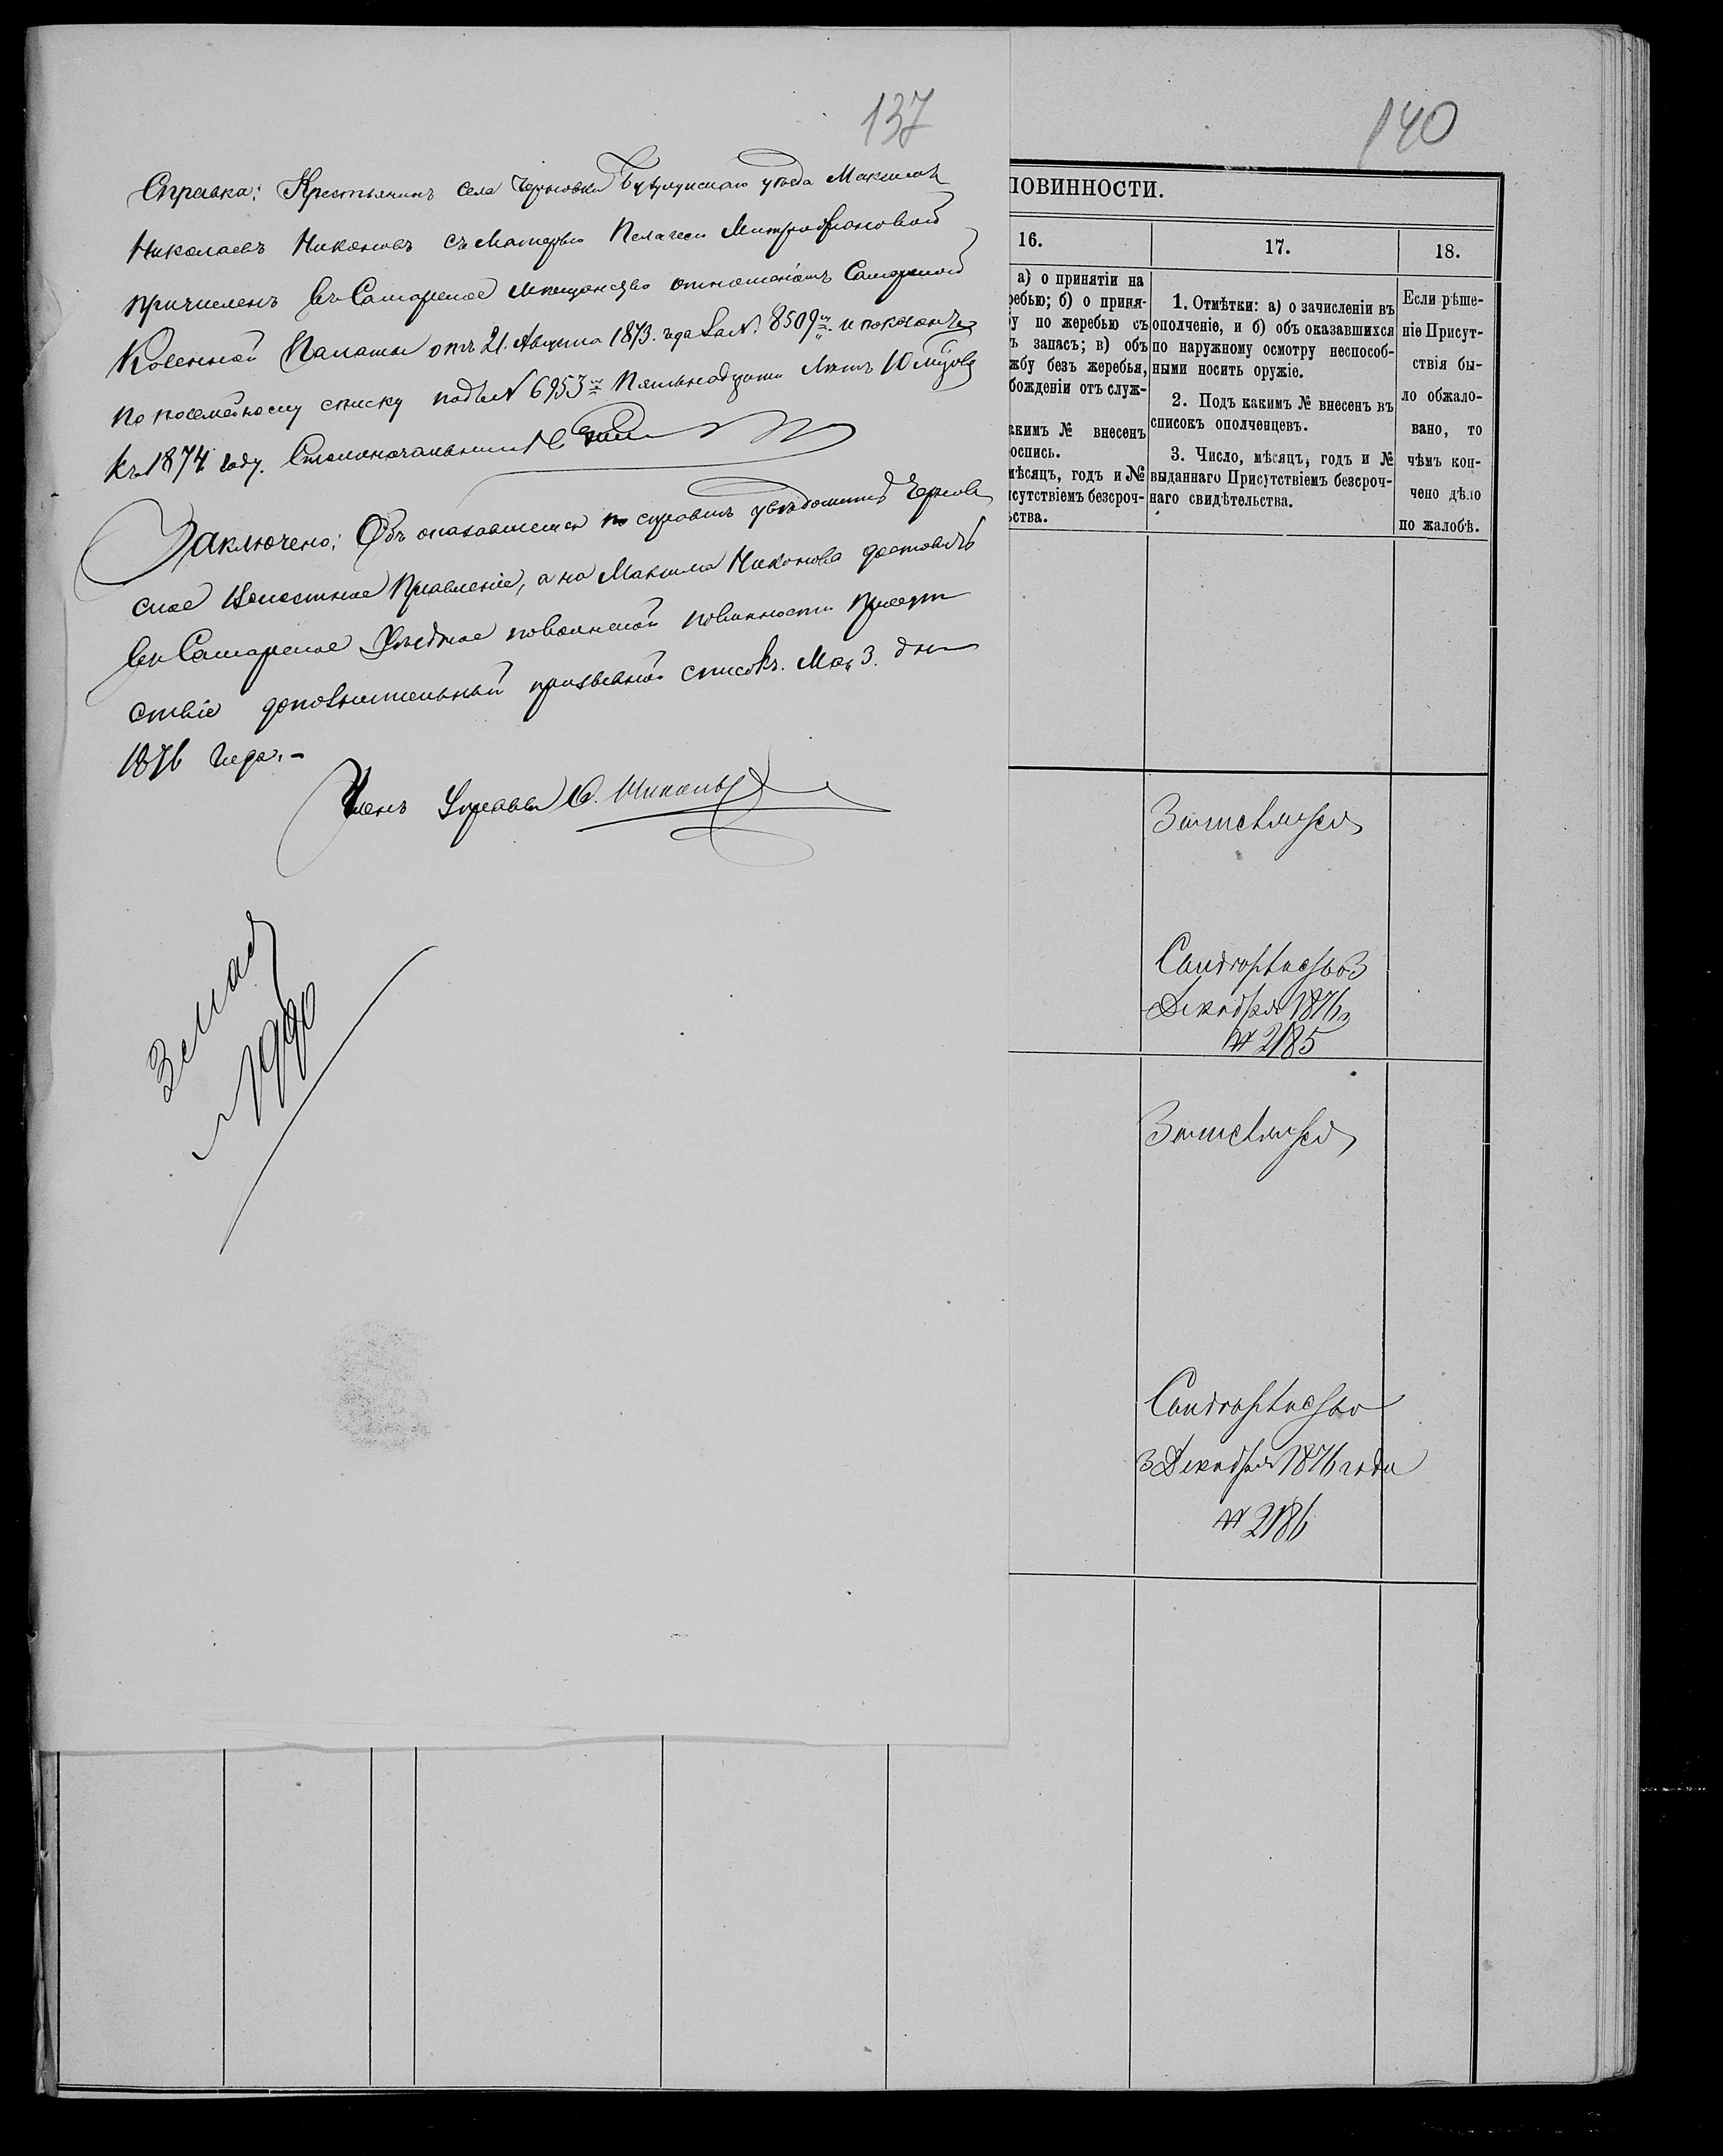 137
Справка: Крестьянинъ села Черновки Бузулукскаго уѣзда Максимъ
Николаевъ Никоновъ съ Матерью Пелагеей Митрофановной
причисленъ въ Самарское мѣщанство отношеніемъ Самарской
Казенной Палаты отъ 21. Августа 1873. года за №. 8509м. и показанъ
по посемейному списку подъ № 6953м Пятьнадцати лѣтъ
къ 1874 году. Столоначальникъ
Заключено: Объ оказавшемся по справкѣ увѣдомить Чернов
ское Волостное Правленіе, а на Максима Никонова доставить
въ Самарское Уѣздное по воинской повинности Присут
ствіе дополнительный призывной списокъ. Мая 3. дня
1876 года.-
Членъ Управы
3 Мая
№ 1990
140
ПОВИННОСТИ.
16.
а) о принятіи на
ребью; б) о приня-
у по жеребью съ
ъ запасъ; в) объ
жбу безъ жеребья,
божденіи отъ служ-
акимъ № внесенъ
оспись.
мѣсяцъ, годъ и №
исутствіемъ безсроч-
ьства.
17.
1. Отмѣтки: а) о зачисленіи въ
ополченіе, и б) объ оказавшихся
по наружному осмотру неспособ-
ными носить оружіе.
2. Подъ какимъ № внесенъ въ
списокъ ополченцевъ.
3. Число, мѣсяцъ, годъ и №
выданнаго Присутствіемъ безсроч-
наго свидѣтельства.
18.
Если рѣше-
ніе Присут-
ствія бы-
ло обжало-
вано, то
чѣмъ кон-
чено дѣло
по жалобѣ.
3
Декабря 1876
№ 2185
3 Декабря 1876 года
№ 2186